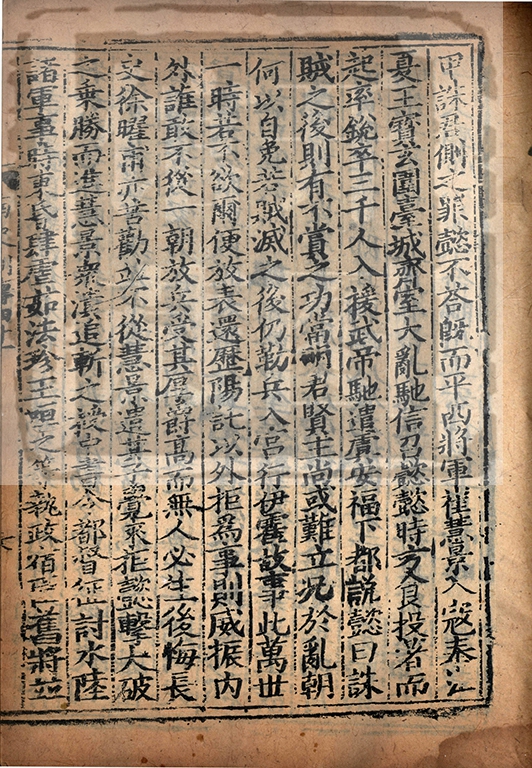 甲誅君側之罪懿不荅旣而平西將軍崔慧景入寇奉江
夏王寳玄圍臺城齊室大亂馳信召懿懿時方食投著而
起率銳卒三千人入援武帝馳遣虞安福下都說懿曰誅
賊之後則有不賞之功當明君賢主尚或難立况於亂朝
何以自免若賊滅之後仍勒兵入宫行伊霍故事此萬世
一時若不欲爾便放表還歷陽託以外拒爲事則威振内
外誰敢不後一朝放兵受其厚爵高而無人必生後悔長
史徐曜甫亦善勸並不從慧景遣其子覺來拒懿擊大破
之乗勝而進慧景衆潰追斬之授中書令都督征討水陸
諸軍事時東昏肆虐茹法珍王咺之等執政宿臣舊將並